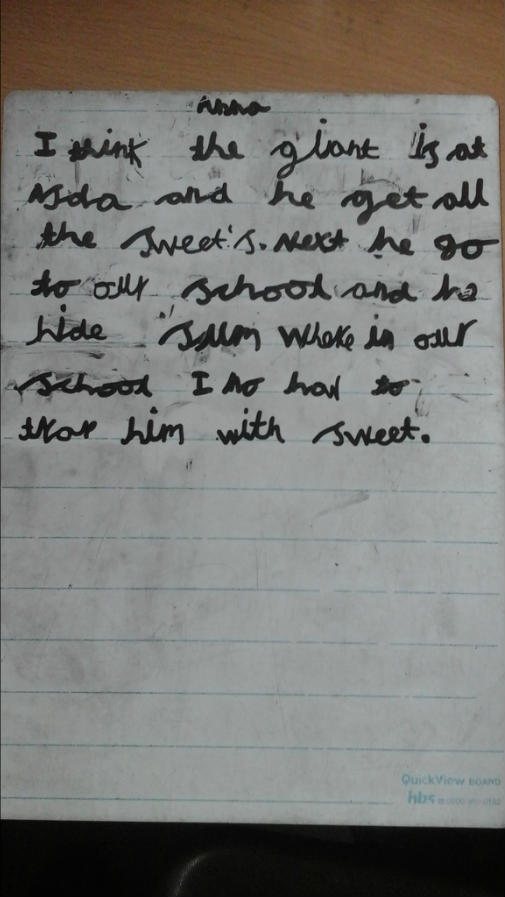 Anna
I think the giant is at
Asda and he get all
the sweet's. Next he go
to our school and he
hide sum where in our
school I no how to
trap him with sweet.
QuickView BOARD
hbs